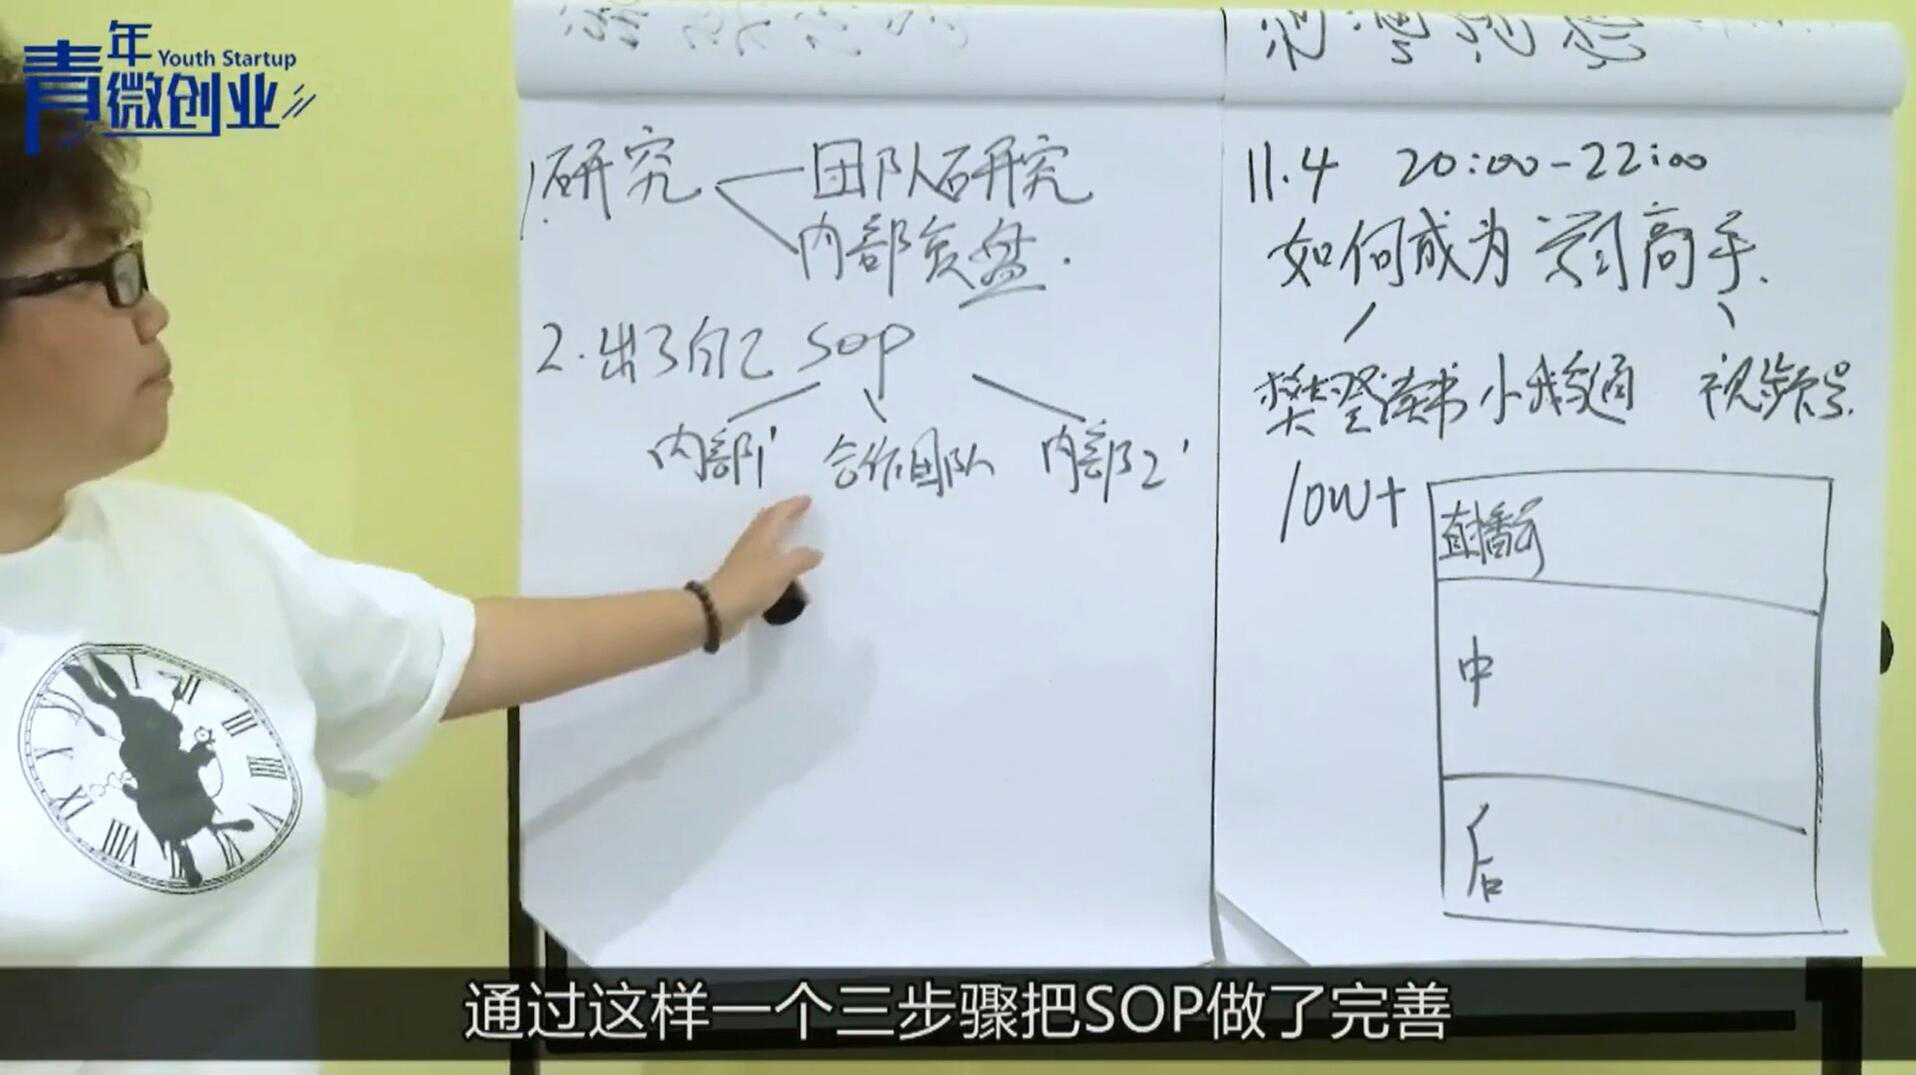 青年微创业
Youth Startup
1.研究
团队研究
内部复盘.
2.出了自己SOP
内部1'
合作团队
内部2'
11.4 20:00-22:00
如何成为 高手.
樊登读书 小鹅通 视频号.
10W+
直播前
中
后
通过这样一个三步骤把SOP做了完善